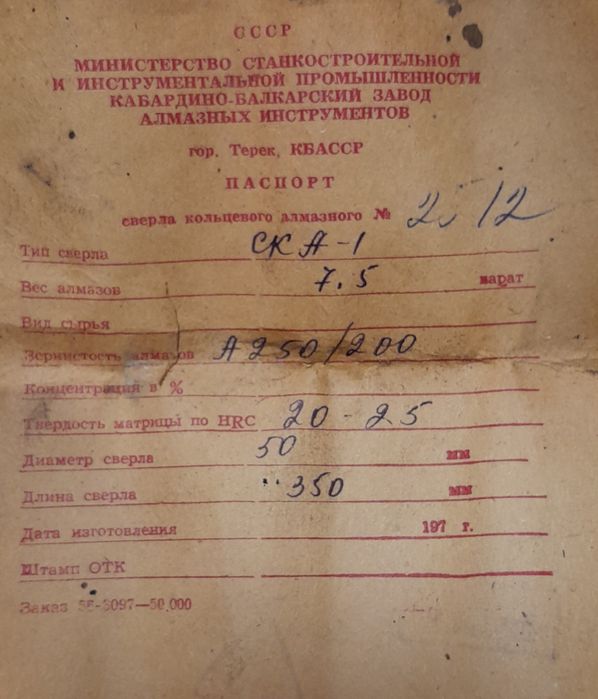 СССР
МИНИСТЕРСТВО СТАНКОСТРОИТЕЛЬНОЙ
И ИНСТРУМЕНТАЛЬНОЙ ПРОМЫШЛЕННОСТИ
КАБАРДИНО-БАЛКАРСКИЙ ЗАВОД
АЛМАЗНЫХ ИНСТРУМЕНТОВ
гор. Терек, КБАССР
ПАСПОРТ
сверла кольцевого алмазного №
Тип сверла СКА-1
Вес алмазов 7.5 карат
Вид сырья
Зернистость алмазов А250/200
Концентрация в %
Твердость матрицы по HRC 20-25
Диаметр сверла 50 мм
Длина сверла 350 мм
Дата изготовления 197 г.
Штамп ОТК
Заказ 097—50.000